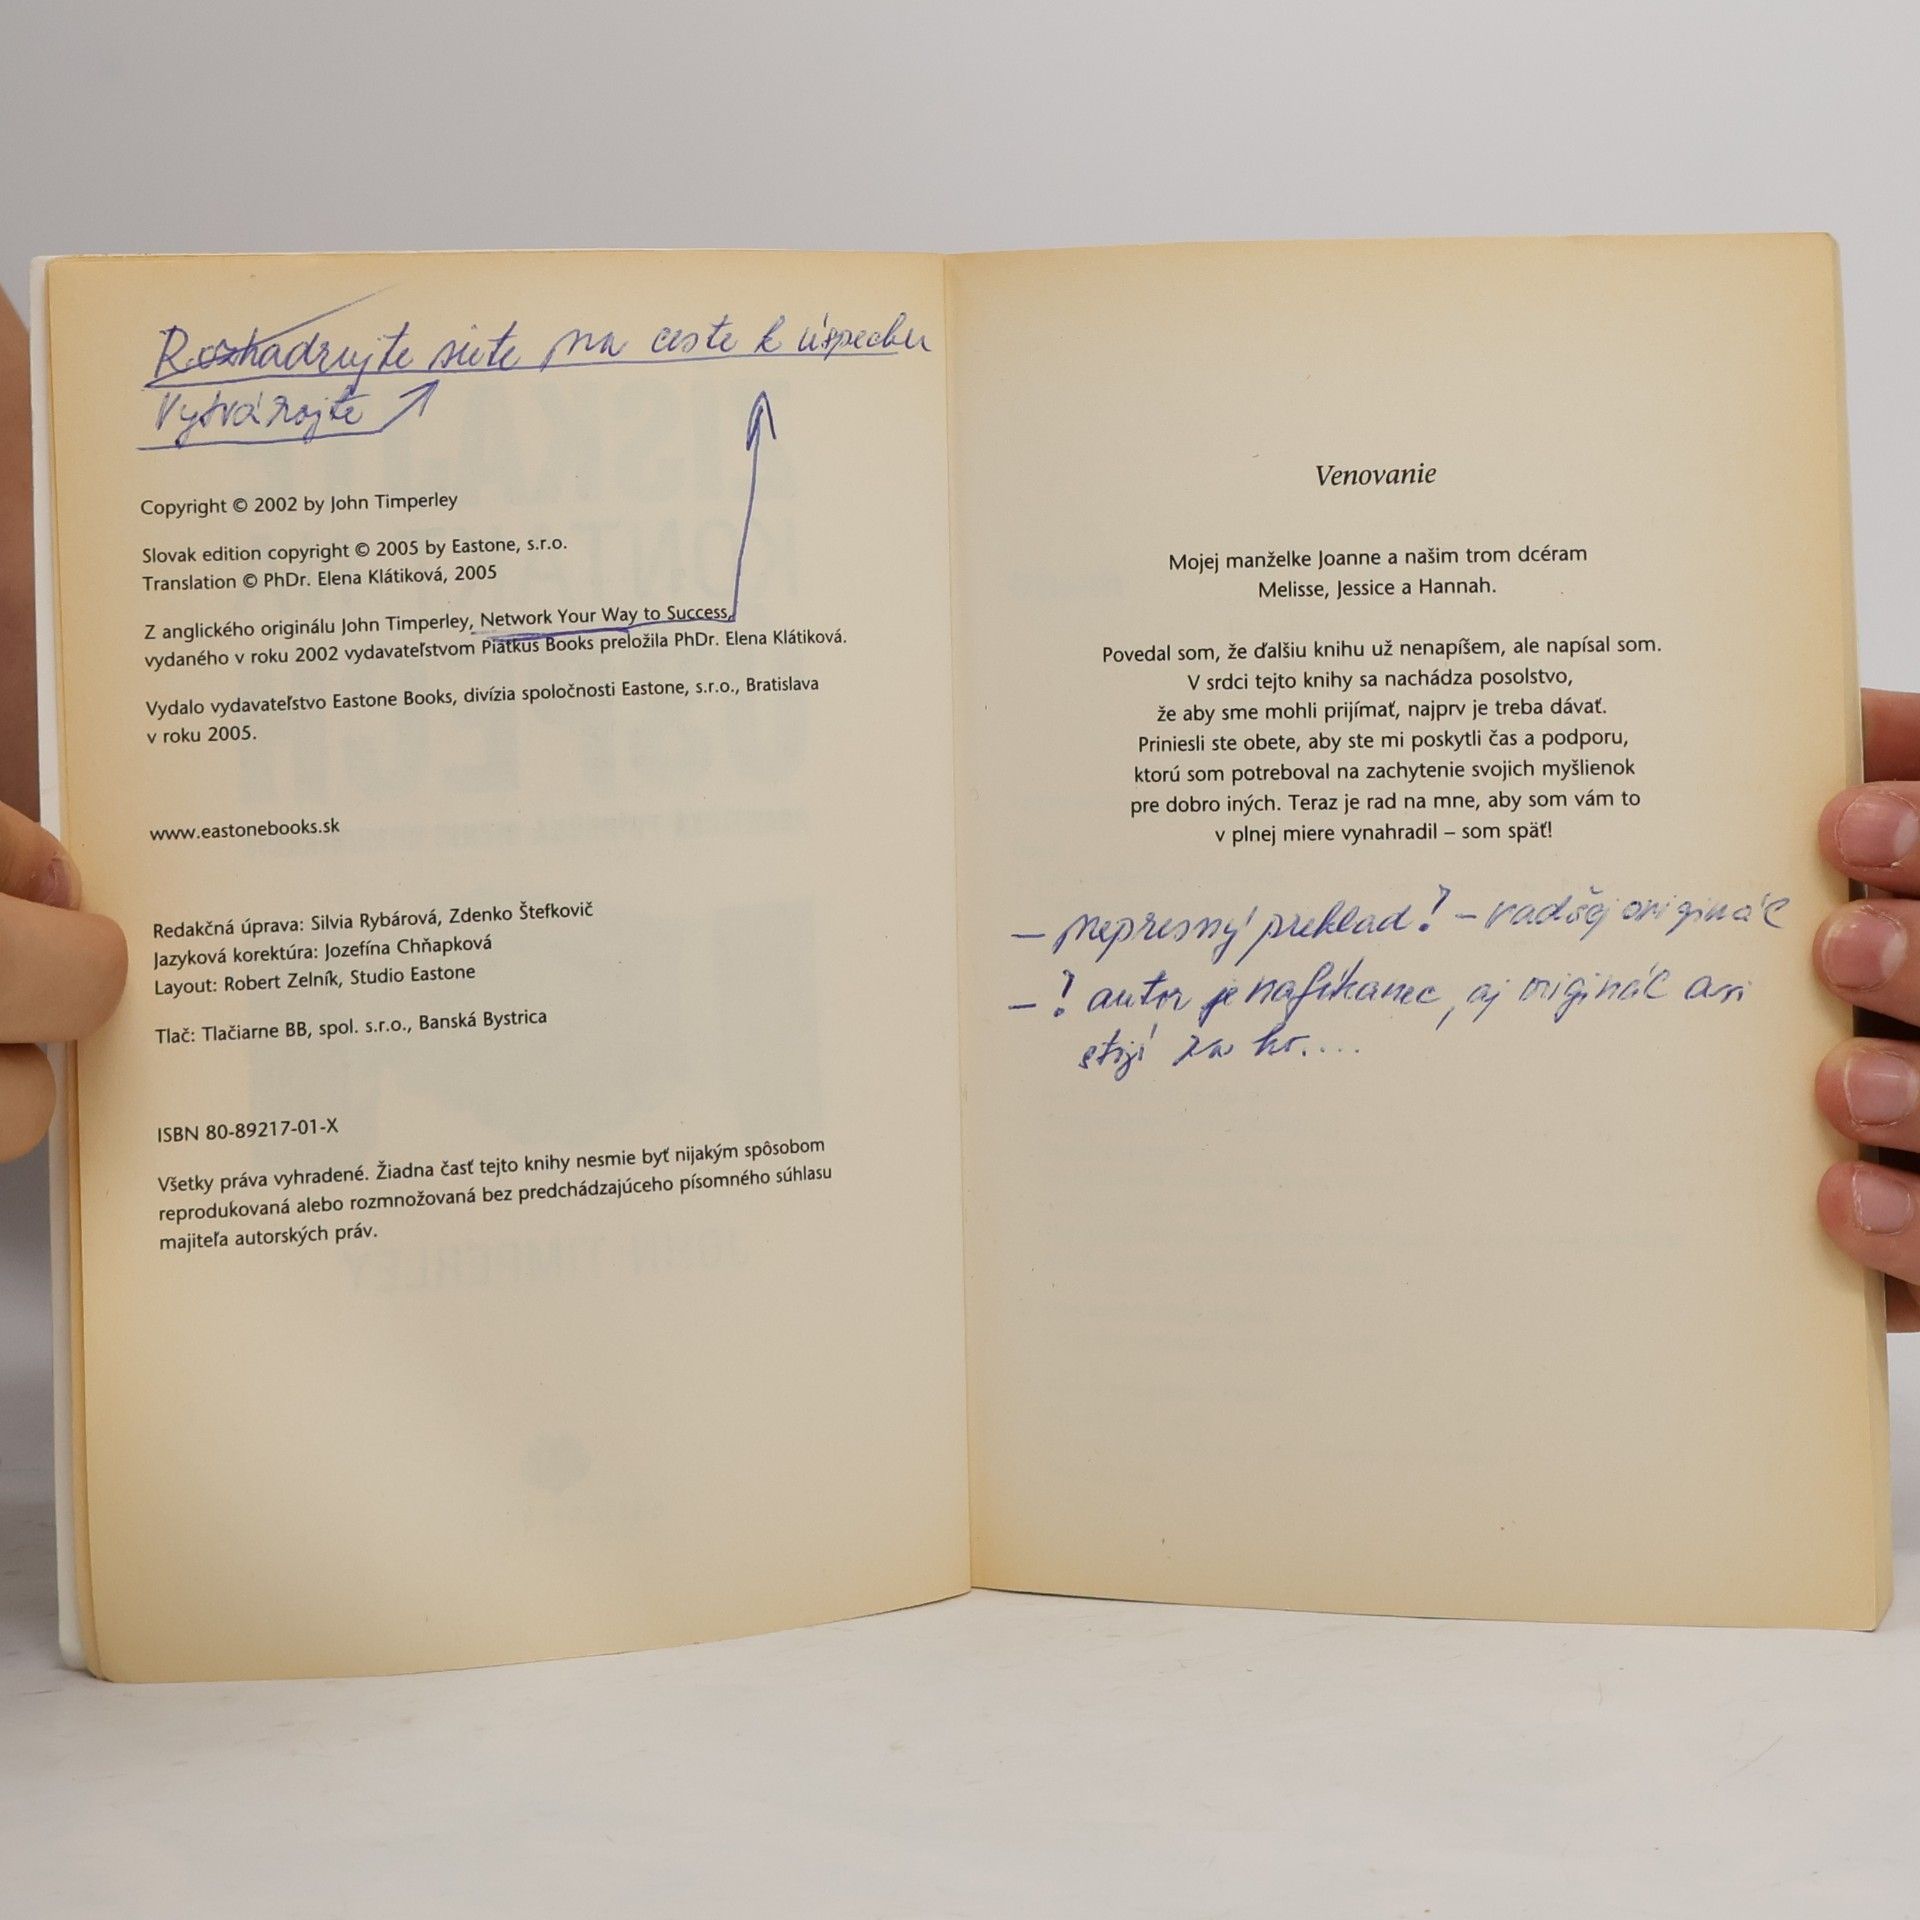 Rozhadrujte siete na ceste k úspechu
Vytvárajte
Copyright © 2002 by John Timperley
Slovak edition copyright © 2005 by Eastone, s.r.o.
Translation © PhDr. Elena Klátiková, 2005
Z anglického originálu John Timperley, Network Your Way to Success,
vydaného v roku 2002 vydavateľstvom Piatkus Books preložila PhDr. Elena Klátiková.
Vydalo vydavateľstvo Eastone Books, divízia spoločnosti Eastone, s.r.o., Bratislava
v roku 2005.
www.eastonebooks.sk
Redakčná úprava: Silvia Rybárová, Zdenko Štefkovič
Jazyková korektúra: Jozefína Chňapková
Layout: Robert Zelník, Studio Eastone
Tlač: Tlačiarne BB, spol. s.r.o., Banská Bystrica
ISBN 80-89217-01-X
Všetky práva vyhradené. Žiadna časť tejto knihy nesmie byť nijakým spôsobom
reprodukovaná alebo rozmnožovaná bez predchádzajúceho písomného súhlasu
majiteľa autorských práv.
Venovanie
Mojej manželke Joanne a našim trom dcéram
Melisse, Jessice a Hannah.
Povedal som, že ďalšiu knihu už nenapíšem, ale napísal som.
V srdci tejto knihy sa nachádza posolstvo,
že aby sme mohli prijímať, najprv je treba dávať.
Priniesli ste obete, aby ste mi poskytli čas a podporu,
ktorú som potreboval na zachytenie svojich myšlienok
pre dobro iných. Teraz je rad na mne, aby som vám to
v plnej miere vynahradil – som späť!
– nepresný preklad? – radšej originál
– ? autor je nafúkanec, aj originál asi
stojí za ho....